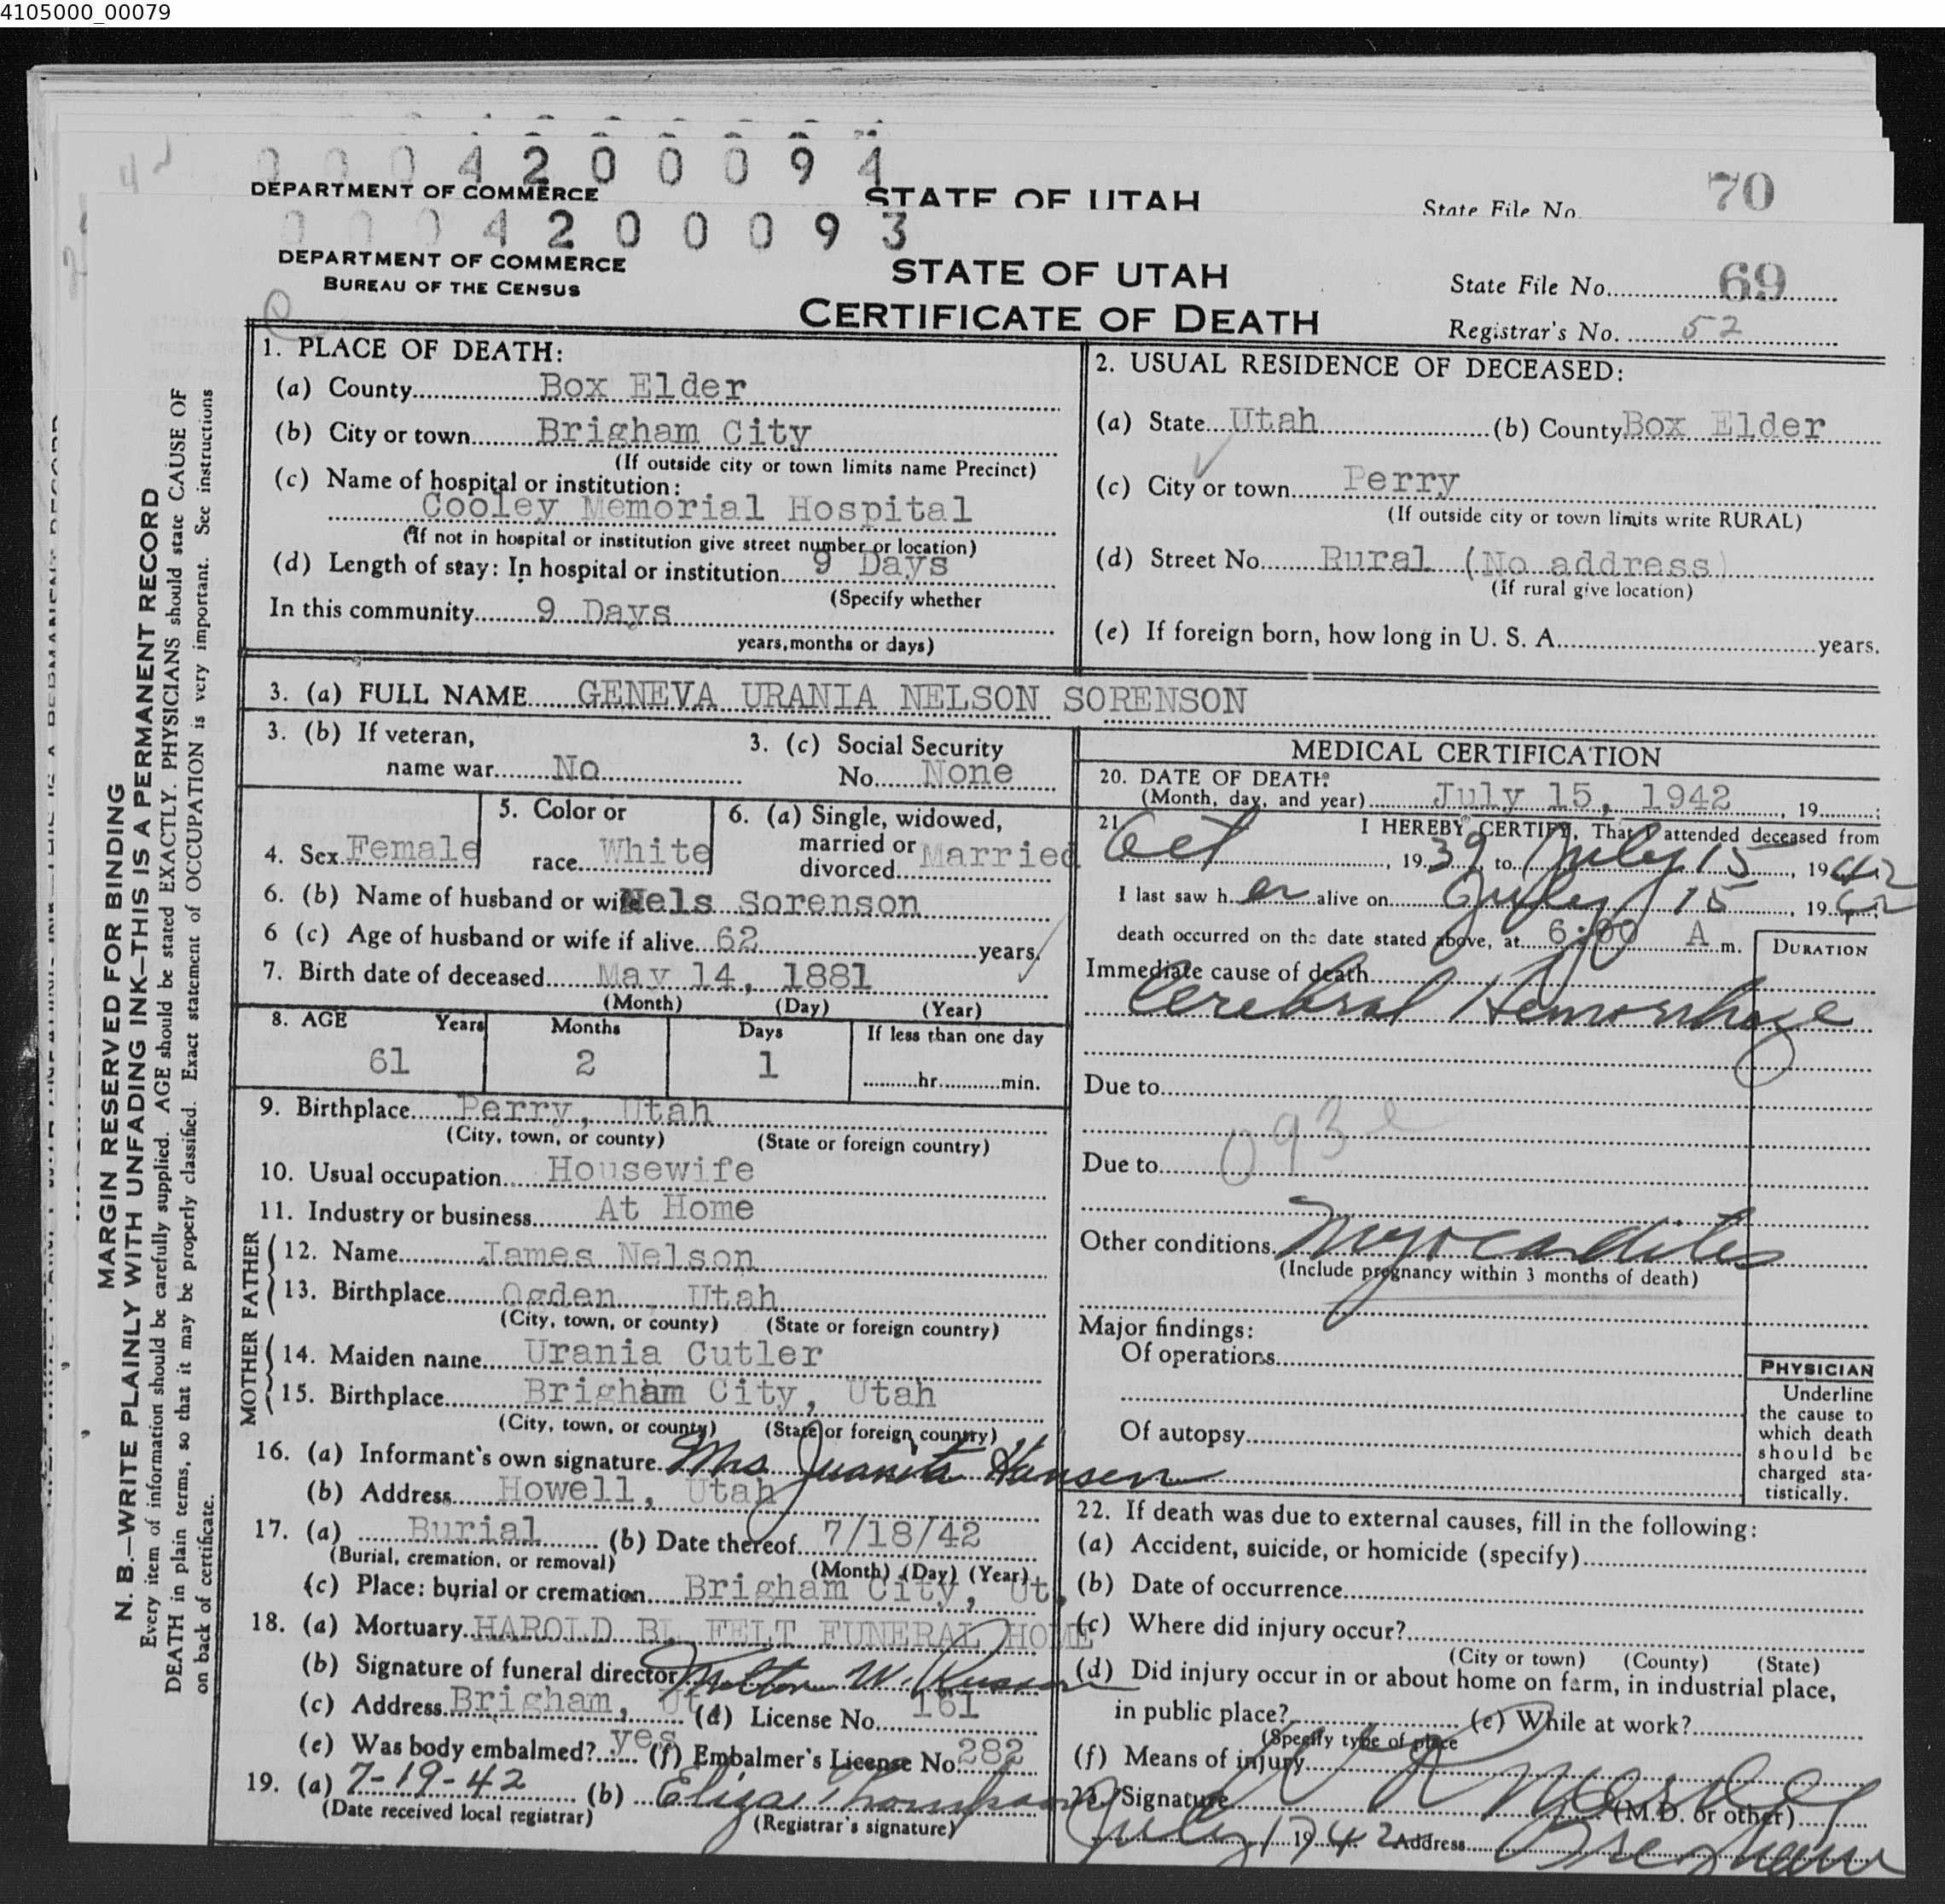 4105000_00079
0 0 0 4 2 0 0 0 9 4
DEPARTMENT OF COMMERCE
STATE OF UTAH
State File No. 70
0 0 0 4 2 0 0 0 9 3
DEPARTMENT OF COMMERCE
BUREAU OF THE CENSUS
STATE OF UTAH
CERTIFICATE OF DEATH
State File No. 69
Registrar's No. 52
MARGIN RESERVED FOR BINDING
N. B.—WRITE PLAINLY WITH UNFADING INK—THIS IS A PERMANENT RECORD
Every item of information should be carefully supplied. AGE should be stated EXACTLY. PHYSICIANS should state CAUSE OF
DEATH in plain terms, so that it may be properly classified. Exact statement of OCCUPATION is very important. See instructions
on back of certificate.
1. PLACE OF DEATH:
(a) County Box Elder
(b) City or town Brigham City
(If outside city or town limits name Precinct)
(c) Name of hospital or institution:
Cooley Memorial Hospital
(If not in hospital or institution give street number or location)
(d) Length of stay: In hospital or institution 9 Days
(Specify whether
In this community 9 Days
years, months or days)
2. USUAL RESIDENCE OF DECEASED:
(a) State Utah (b) County Box Elder
(c) City or town Perry
(If outside city or town limits write RURAL)
(d) Street No. Rural (No address)
(If rural give location)
(e) If foreign born, how long in U. S. A. years.
3. (a) FULL NAME GENEVA URANIA NELSON SORENSON
3. (b) If veteran,
name war No
3. (c) Social Security
No. None
4. Sex Female
5. Color or
race White
6. (a) Single, widowed,
married or
divorced Married
6. (b) Name of husband or wife Nels Sorenson
6 (c) Age of husband or wife if alive 62 years.
7. Birth date of deceased May 14, 1881
(Month) (Day) (Year)
8. AGE Years Months Days If less than one day
61 2 1 hr. min.
9. Birthplace Perry, Utah
(City, town, or county) (State or foreign country)
10. Usual occupation Housewife
11. Industry or business At Home
FATHER
12. Name James Nelson
13. Birthplace Ogden, Utah
(City, town, or county) (State or foreign country)
MOTHER
14. Maiden name Urania Cutler
15. Birthplace Brigham City, Utah
(City, town, or county) (State or foreign country)
16. (a) Informant's own signature Mrs Juanita Hansen
(b) Address Howell, Utah
17. (a) Burial (b) Date thereof 7/18/42
(Burial, cremation, or removal) (Month) (Day) (Year)
(c) Place: burial or cremation Brigham City, Ut.
18. (a) Mortuary HAROLD B. FELT FUNERAL HOME
(b) Signature of funeral director W.
(c) Address Brigham, Ut (d) License No. 161
(e) Was body embalmed? yes (f) Embalmer's License No. 282
19. (a) 7-19-42 (b) Eliza Thompson
(Date received local registrar) (Registrar's signature)
MEDICAL CERTIFICATION
20. DATE OF DEATH:
(Month, day, and year) July 15, 1942, 19
21. I HEREBY CERTIFY, That I attended deceased from
Oct, 1939 to July 15, 1942
I last saw her alive on July 15, 1942
death occurred on the date stated above, at 6:00 A m.
DURATION
Immediate cause of death
Cerebral Hemorrhage
Due to
093
Due to
Other conditions Myocarditis
(Include pregnancy within 3 months of death)
Major findings:
Of operations
Of autopsy
PHYSICIAN
Underline
the cause to
which death
should be
charged sta-
tistically.
22. If death was due to external causes, fill in the following:
(a) Accident, suicide, or homicide (specify)
(b) Date of occurrence
(c) Where did injury occur?
(City or town) (County) (State)
(d) Did injury occur in or about home on farm, in industrial place,
in public place? (e) While at work?
(Specify type of place
(f) Means of injury
23. Signature (M.D. or other)
July 17 1942 Address Brigham